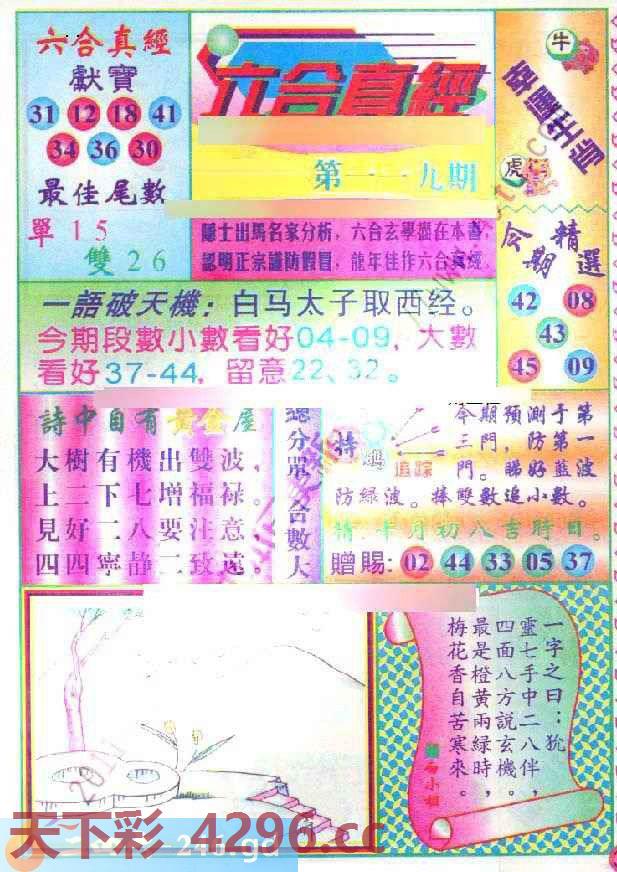 六合真經
獻寶
31 12 18 41
34 36 30
最佳尾數
單 15
雙 26
六合真經
第一一九期
隱士出馬名家分析，六合玄學盡在本書，
認明正宗謹防假冒，龍年佳作六合真經。
牛
虎
今期
精選
42 08
43
45 09
一語破天機：白马太子取西经。
今期段數小數看好04-09，大數
看好37-44，留意22、32。
詩中自有黃金屋
大樹有機出雙波，
上二下七增福禄。
見好二八要注意，
四四寧静二致遠。
總分單
合數大
特
追踪
今期預測于第
三門，防第一
門。睇好藍波
防緑波。捧雙數追小數。
半月初八吉時日。
贈賜: 02 44 33 05 37
一字之曰：
靈七手中二八伴，
四面八方說玄機。
最是橙黃兩緑時，
梅花香自苦寒來。
天下彩 4296.cc
246.gd